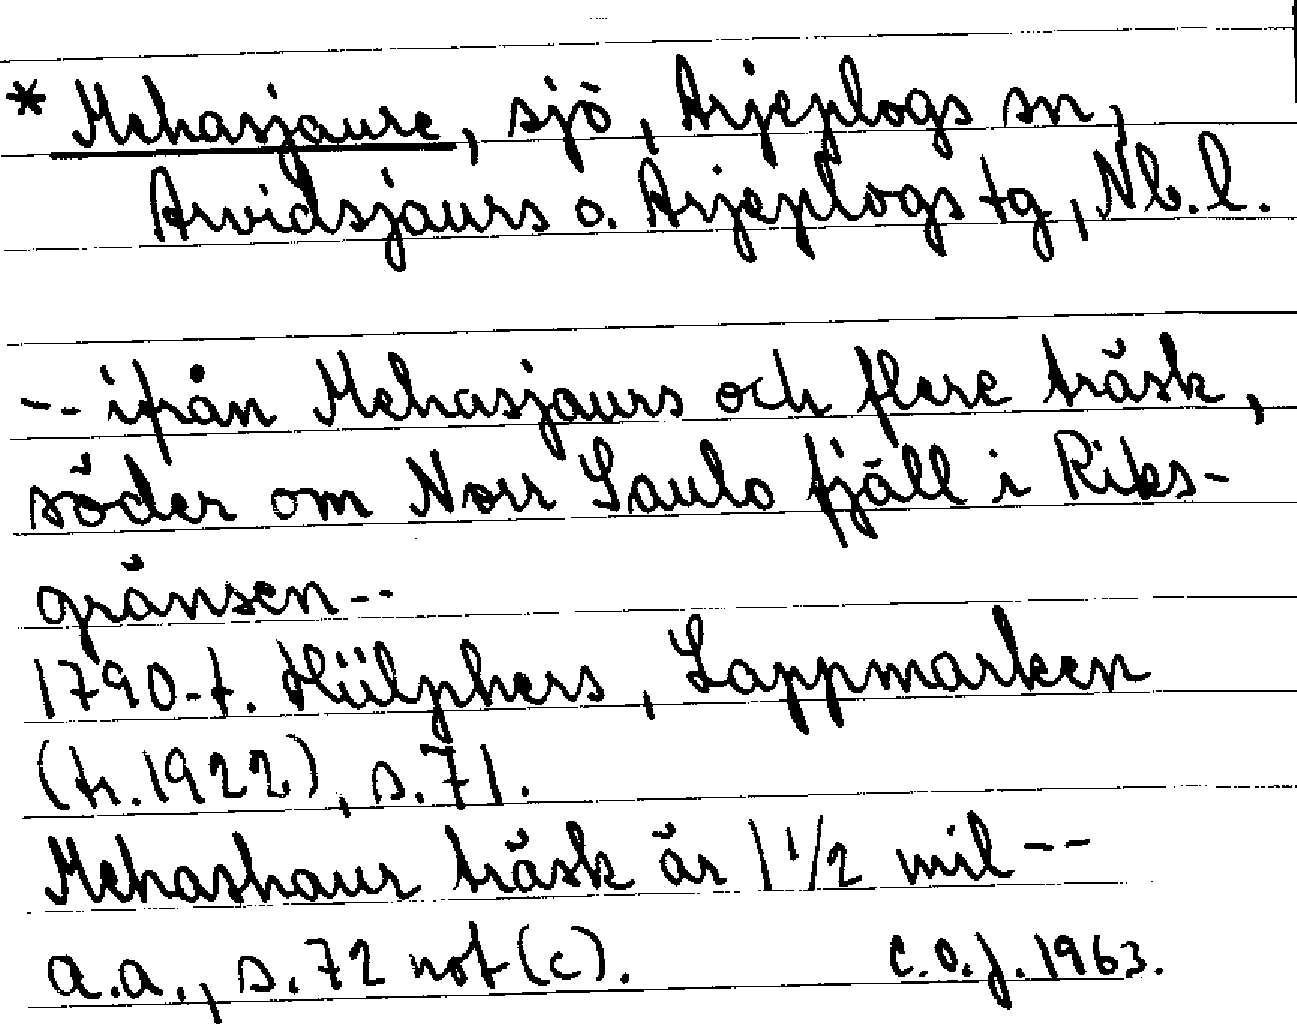 * Mehasjaure, sjö, Arjeplogs sn,
Arvidsjaurs o. Arjeplogs tg, Nb.l.
-- ifrån Mehasjaurs och flere träsk,
söder om Norr Saulo fjäll i Riks-
gränsen --
1790-t. Hülphers, Lappmarken
(tr. 1922), s. 71.
Mehashaur träsk är 1 1/2 mil --
a.a., s. 72 not (c). C.O.J. 1963.